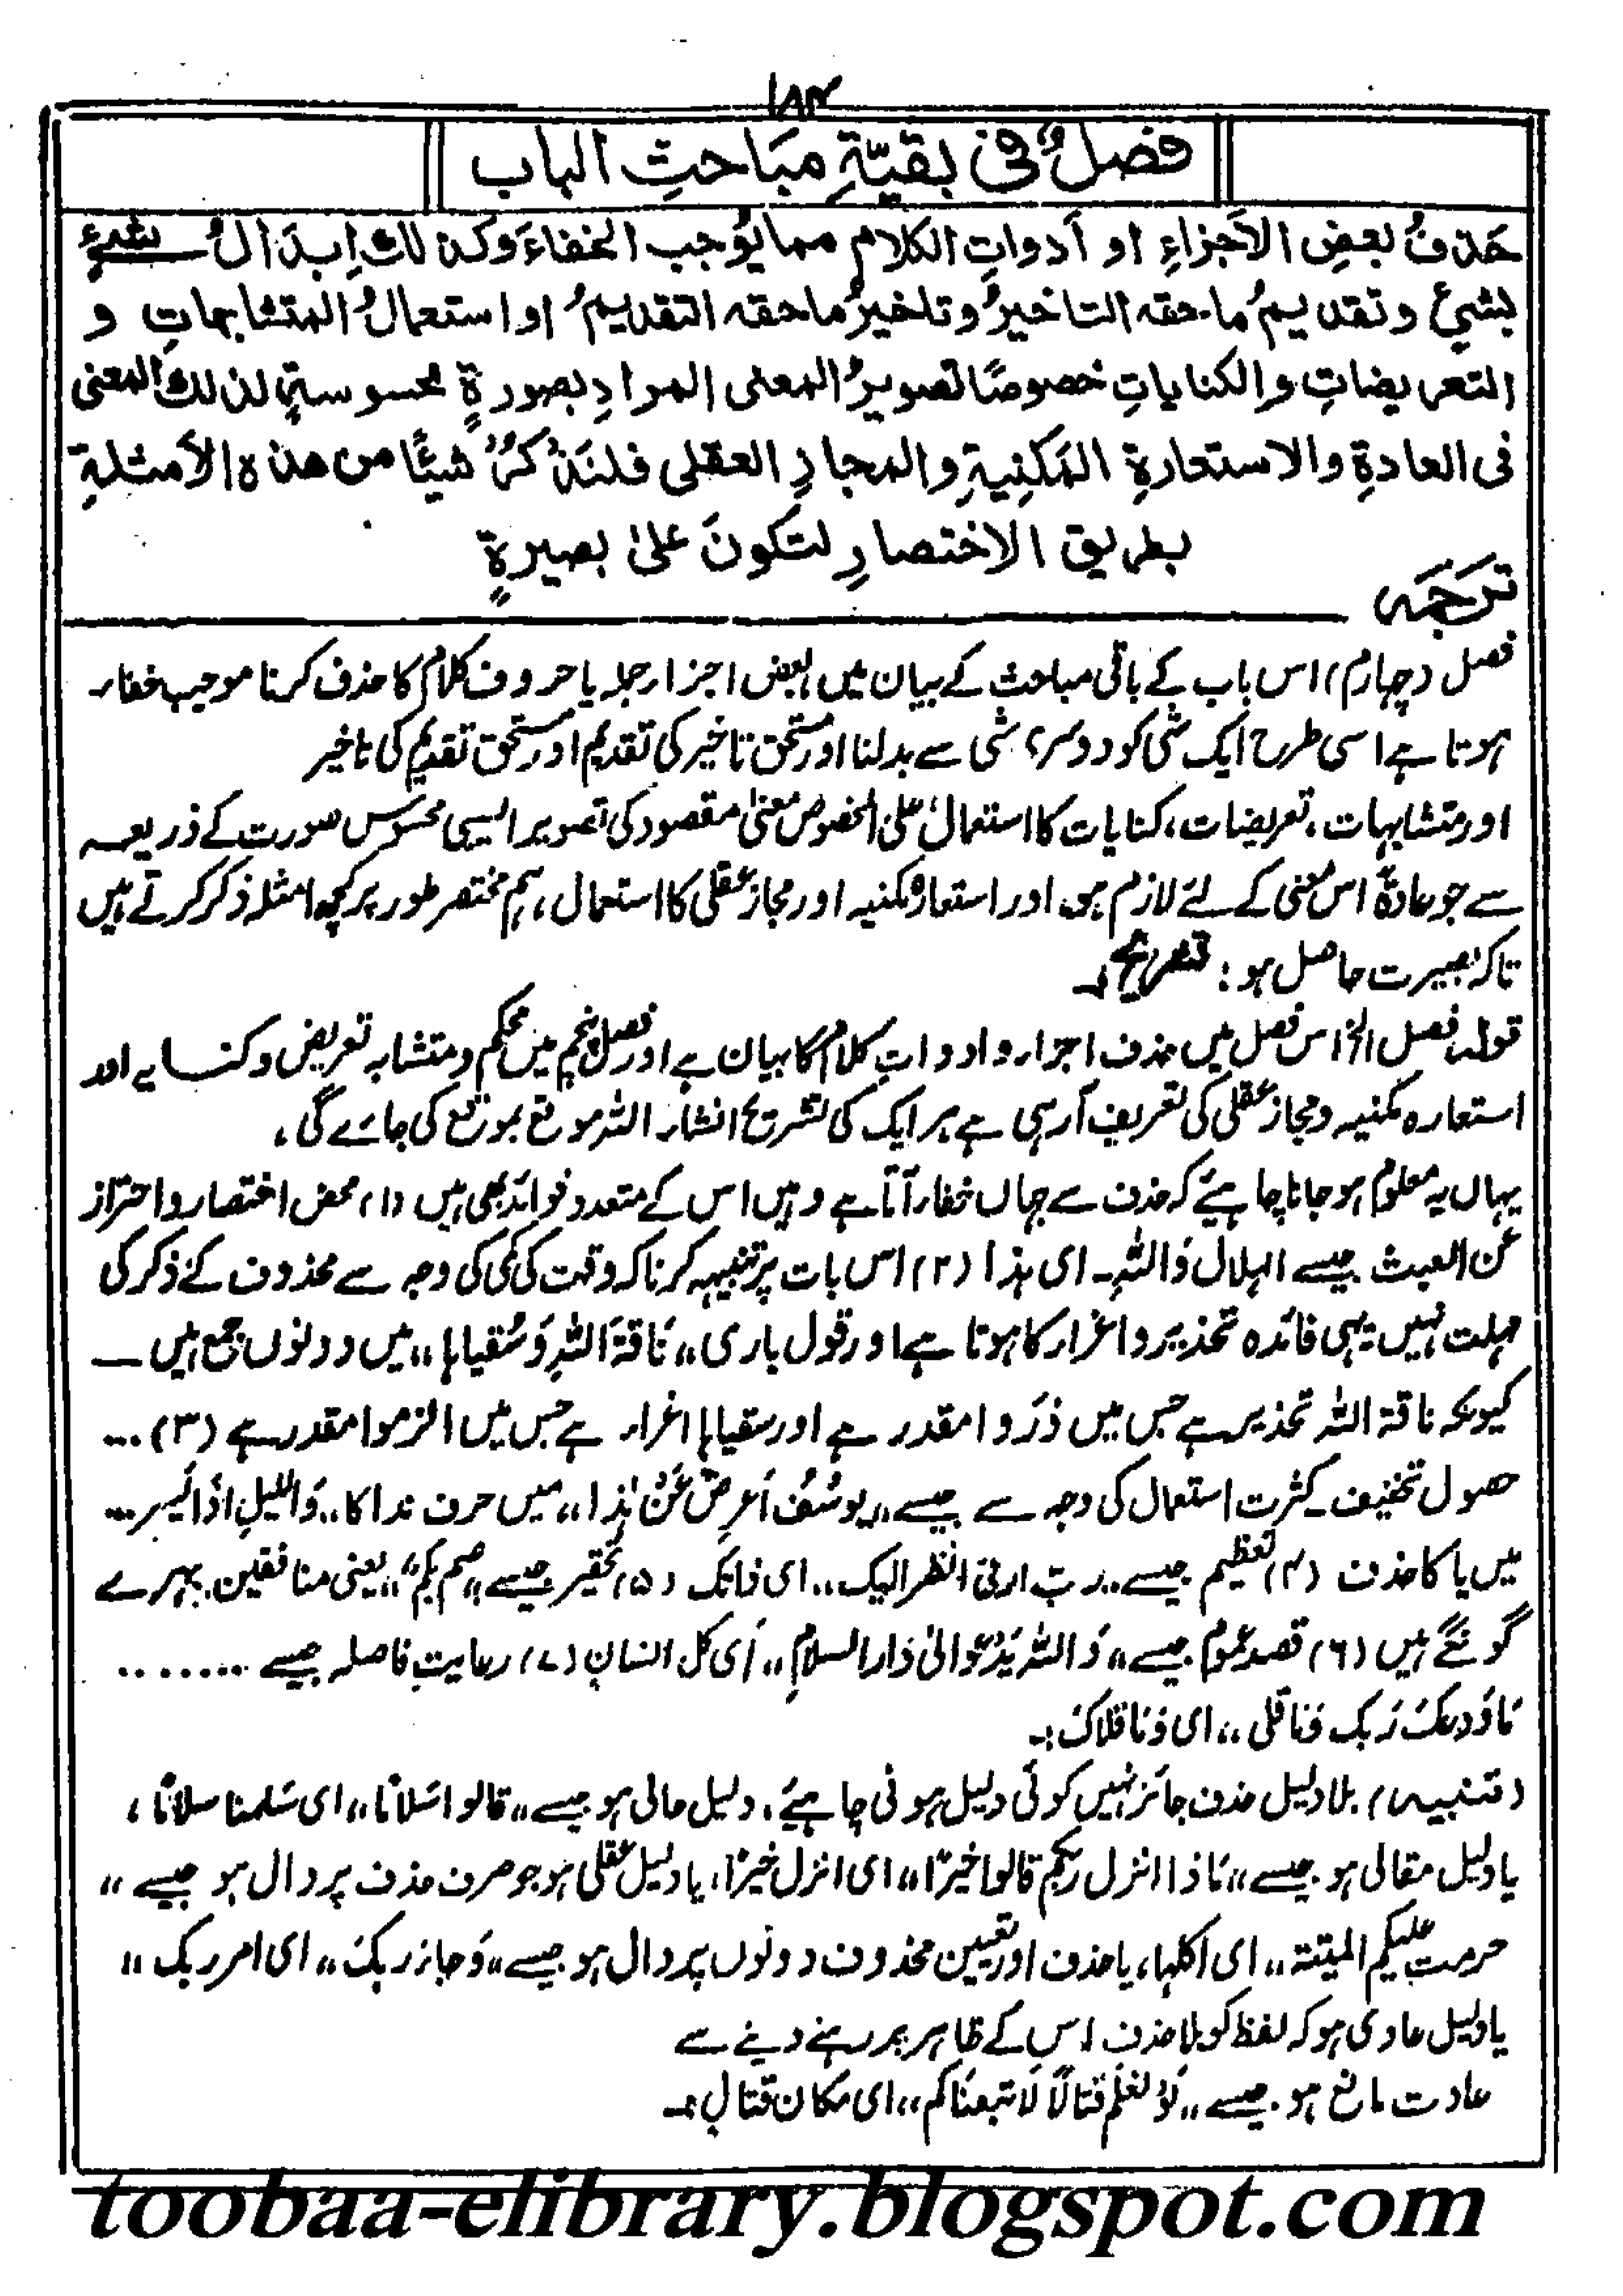 ۱۸۳
فصلٌ فی بقیّةِ مبَاحثِ الباب
حَذفُ بعضِ الاَجزاءِ او اَدواتِ الکلامِ مما یُوجب الخفاءَ وکذٰلك اِبدَالُ شیءٍ
بشیءٍ وتقدیمُ ما حقه التاخیرُ وتاخیرُ ما حقه التقدیمُ او استعمالُ المتشابهاتِ و
التعریضاتِ والکنایاتِ خصوصًا تصویرُ المعنی المرادِ بصورةٍ محسوسةٍ لذلك المعنی
فی العادةِ والاستعارةِ المَکنِیةِ والمجازِ العقلی فلنَذْکرْ شیئًا من هذه الاَمثلةِ
بطریق الاختصارِ لتکونَ علیٰ بصیرةٍ
ترَجَمَہ
فصل (چہارم) اس باب کے باقی مباحث کے بیان میں، بعض اجزار جملہ یا حروف کلام کا حذف کرنا موجب خفار
ہوتا ہے اسی طرح ایک شئی کو دوسری شئی سے بدلنا اور مستحق تاخیر کی تقدیم اور مستحق تقدیم کی تاخیر
اور متشابہات، تعریضات، کنایات کا استعمال علی الخصوص معنیٰ مقصود کی تصویر ایسی محسوس صورت کے ذریعہ
سے جو عادۃً اس معنی کے لئے لازم ہو، اور استعارہ مکنیہ اور مجاز عقلی کا استعمال، ہم مختصر طور پر کچھ امثلہ ذکر کرتے ہیں
تاکہ بصیرت حاصل ہو: تشریح:۔
قولہ فصل الخ اس فصل میں حذف اجزار و ادوات کلام کا بیان ہے اور فصل پنجم میں محکم و متشابہ تعریض و کنایہ اور
استعارہ مکنیہ و مجاز عقلی کی تعریف آرہی ہے ہر ایک کی تشریح انشار اللہ موقع بموقع کی جائے گی،
یہاں یہ معلوم ہو جانا چاہئیے کہ حذف سے جہاں خفار آتا ہے وہیں اس کے متعدد فوائد بھی ہیں (۱) محض اختصار و احتراز
عن العبث جیسے الہلال وَاللّٰہِ۔ ای ہذا (۲) اس بات پر تنبیہہ کرنا کہ وقت کی کمی کی وجہ سے محذوف کے ذکر کی
مہلت نہیں یہی فائدہ تحذیر و اغرار کا ہوتا ہے اور قول باری ،،نَاقۃَ اللّٰہِ وَسُقیاہا،، میں دونوں جمع ہیں —
کیونکہ ناقۃ اللہ تحذیر ہے جس میں ذرَوا مقدر ہے اور سقیاہا اغرار ہے جس میں الزموا مقدر ہے (۳) ...
حصول تخفیف کثرت استعمال کی وجہ سے جیسے ،،یوسُفُ اَعرِضْ عَنْ ہٰذا،، میں حرف ندا کا ،،وَاللیلِ اذَا یَسر...
میں یا کا حذف (۴) تعظیم جیسے ،،رب ارنی انظر الیک،، ای ذاتک (۵) تحقیر جیسے ،،صم بکم،، یعنی منافقین بہرے
گونگے ہیں (۶) قصد عموم جیسے ،،وَاللّٰہ یَدْعُوا الیٰ دَار السلامِ،، اَی کل انسانٍ (۷) رعایتِ فاصلہ جیسے ........
مَاوَدعکَ رَبک وَمَا قلٰی،، ای وَمَا قلاکَ:۔
(تنبیہ) بلا دلیل حذف جائز نہیں کوئی دلیل ہونی چاہئیے، دلیل حالی ہو جیسے ،،قالوا سَلامًا،، ای سَلمنا سلامًا،
یا دلیل مقالی ہو جیسے ،،مَاذا انزل ربکم قالوا خیرًا،، ای انزل خیرًا، یا دلیل عقلی ہو جو صرف حذف پر دال ہو جیسے ،،
حرمت علیکم المیتۃ،، ای اکلہا، یا حذف اور تعیین محذوف دونوں پر دال ہو جیسے ،،وَجار ربکَ،، ای امر ربک ،،
یا دلیل عادی ہو کہ لفظ کو بلا حذف اس کے ظاہر پر رہنے دینے سے
عادت مانع ہو۔ جیسے ،،لَوْ نَعْلَم قتالًا لَاتبعنَاکم،، ای مکان قتالٍ:۔
toobaa-elibrary.blogspot.com